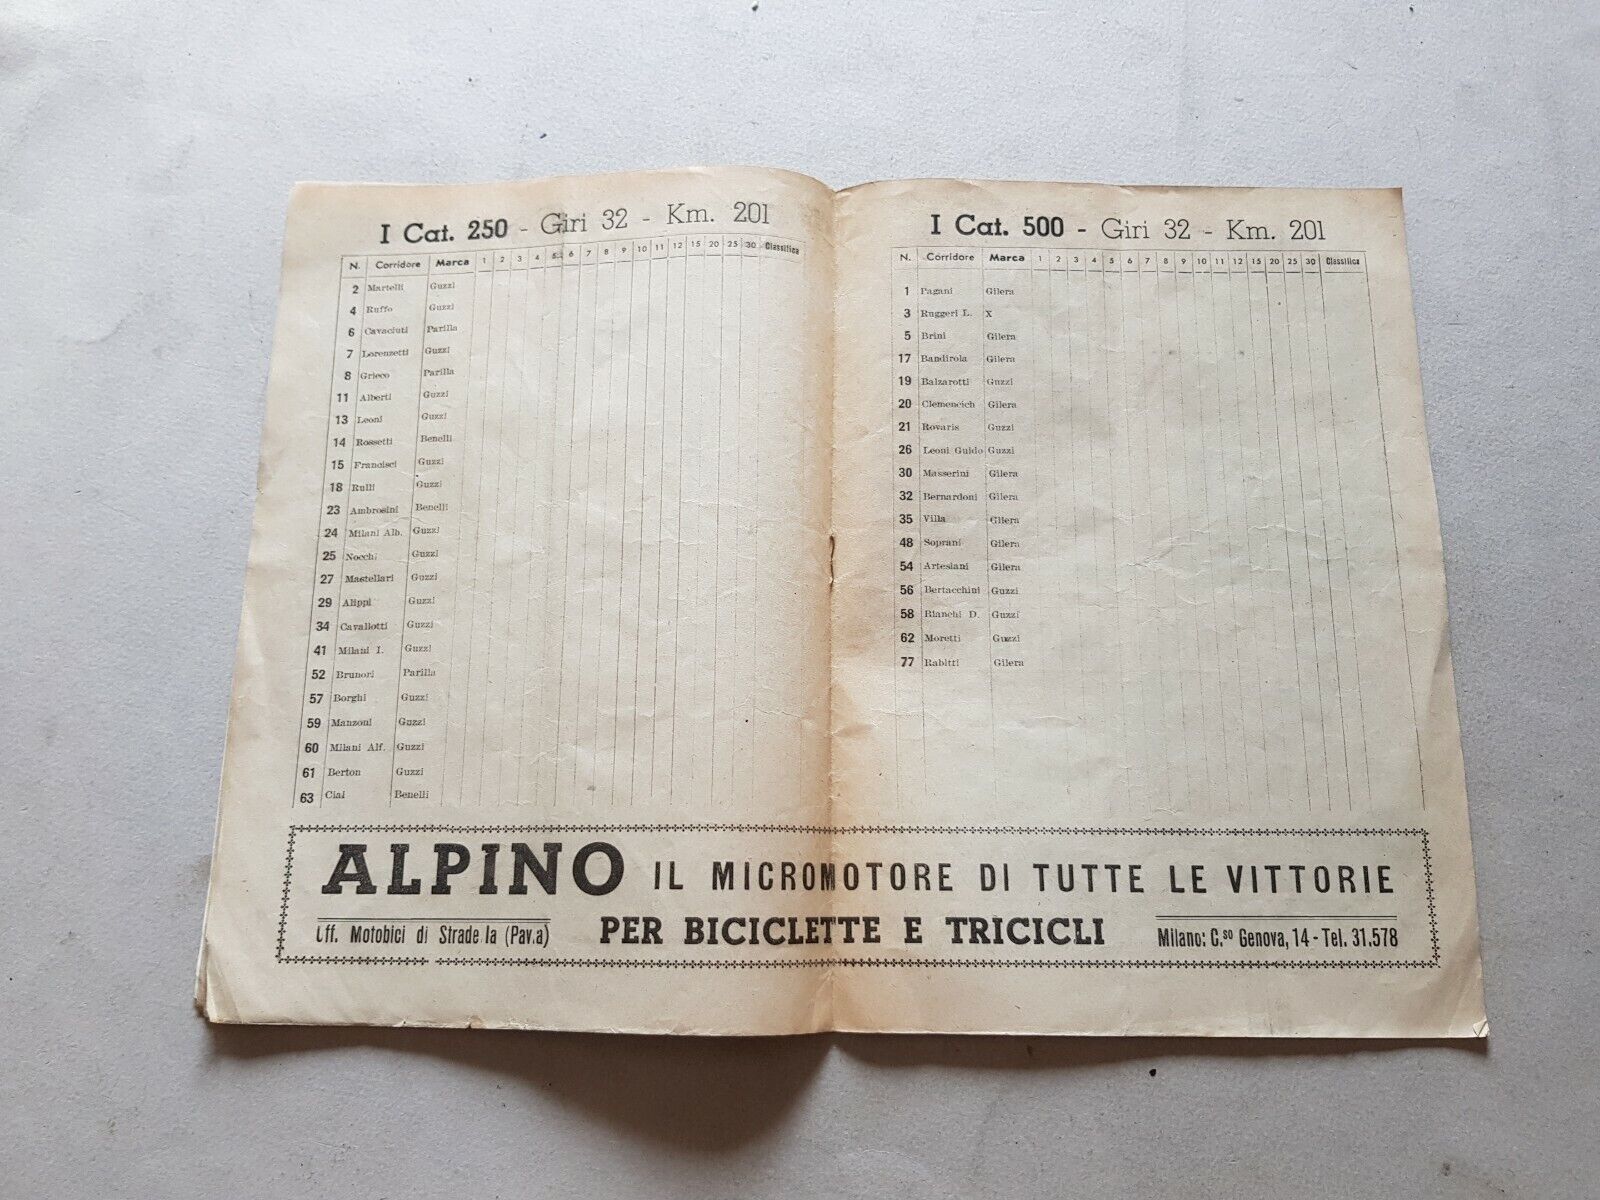 I Cat. 250 - Giri 32 - Km. 201
N. Corridore Marca 1 2 3 4 5 6 7 8 9 10 11 12 15 20 25 30 Classifica
2 Martelli Guzzi
4 Ruffo Guzzi
6 Cavaciuti Parilla
7 Lorenzetti Guzzi
8 Grieco Parilla
11 Alberti Guzzi
13 Leoni Guzzi
14 Rossetti Benelli
15 Francisci Guzzi
18 Rulli Guzzi
23 Ambrosini Benelli
24 Milani Alb. Guzzi
25 Nocchi Guzzi
27 Mastellari Guzzi
29 Alippi Guzzi
34 Cavallotti Guzzi
41 Milani I. Guzzi
52 Brunori Parilla
57 Borghi Guzzi
59 Manzoni Guzzi
60 Milani Alf. Guzzi
61 Berton Guzzi
63 Ciai Benelli
I Cat. 500 - Giri 32 - Km. 201
N. Corridore Marca 1 2 3 4 5 6 7 8 9 10 11 12 15 20 25 30 Classifica
1 Pagani Gilera
3 Ruggeri L. X
5 Brini Gilera
17 Bandirola Gilera
19 Balzarotti Guzzi
20 Clemencich Gilera
21 Rovaris Guzzi
26 Leoni Guido Guzzi
30 Masserini Gilera
32 Bernardoni Gilera
35 Villa Gilera
48 Soprani Gilera
54 Artesiani Gilera
56 Bertacchini Guzzi
58 Bianchi D. Guzzi
62 Moretti Guzzi
77 Rabitti Gilera
ALPINO IL MICROMOTORE DI TUTTE LE VITTORIE
Off. Motobici di Stradella (Pavia) PER BICICLETTE E TRICICLI Milano: C.so Genova, 14 - Tel. 31.578